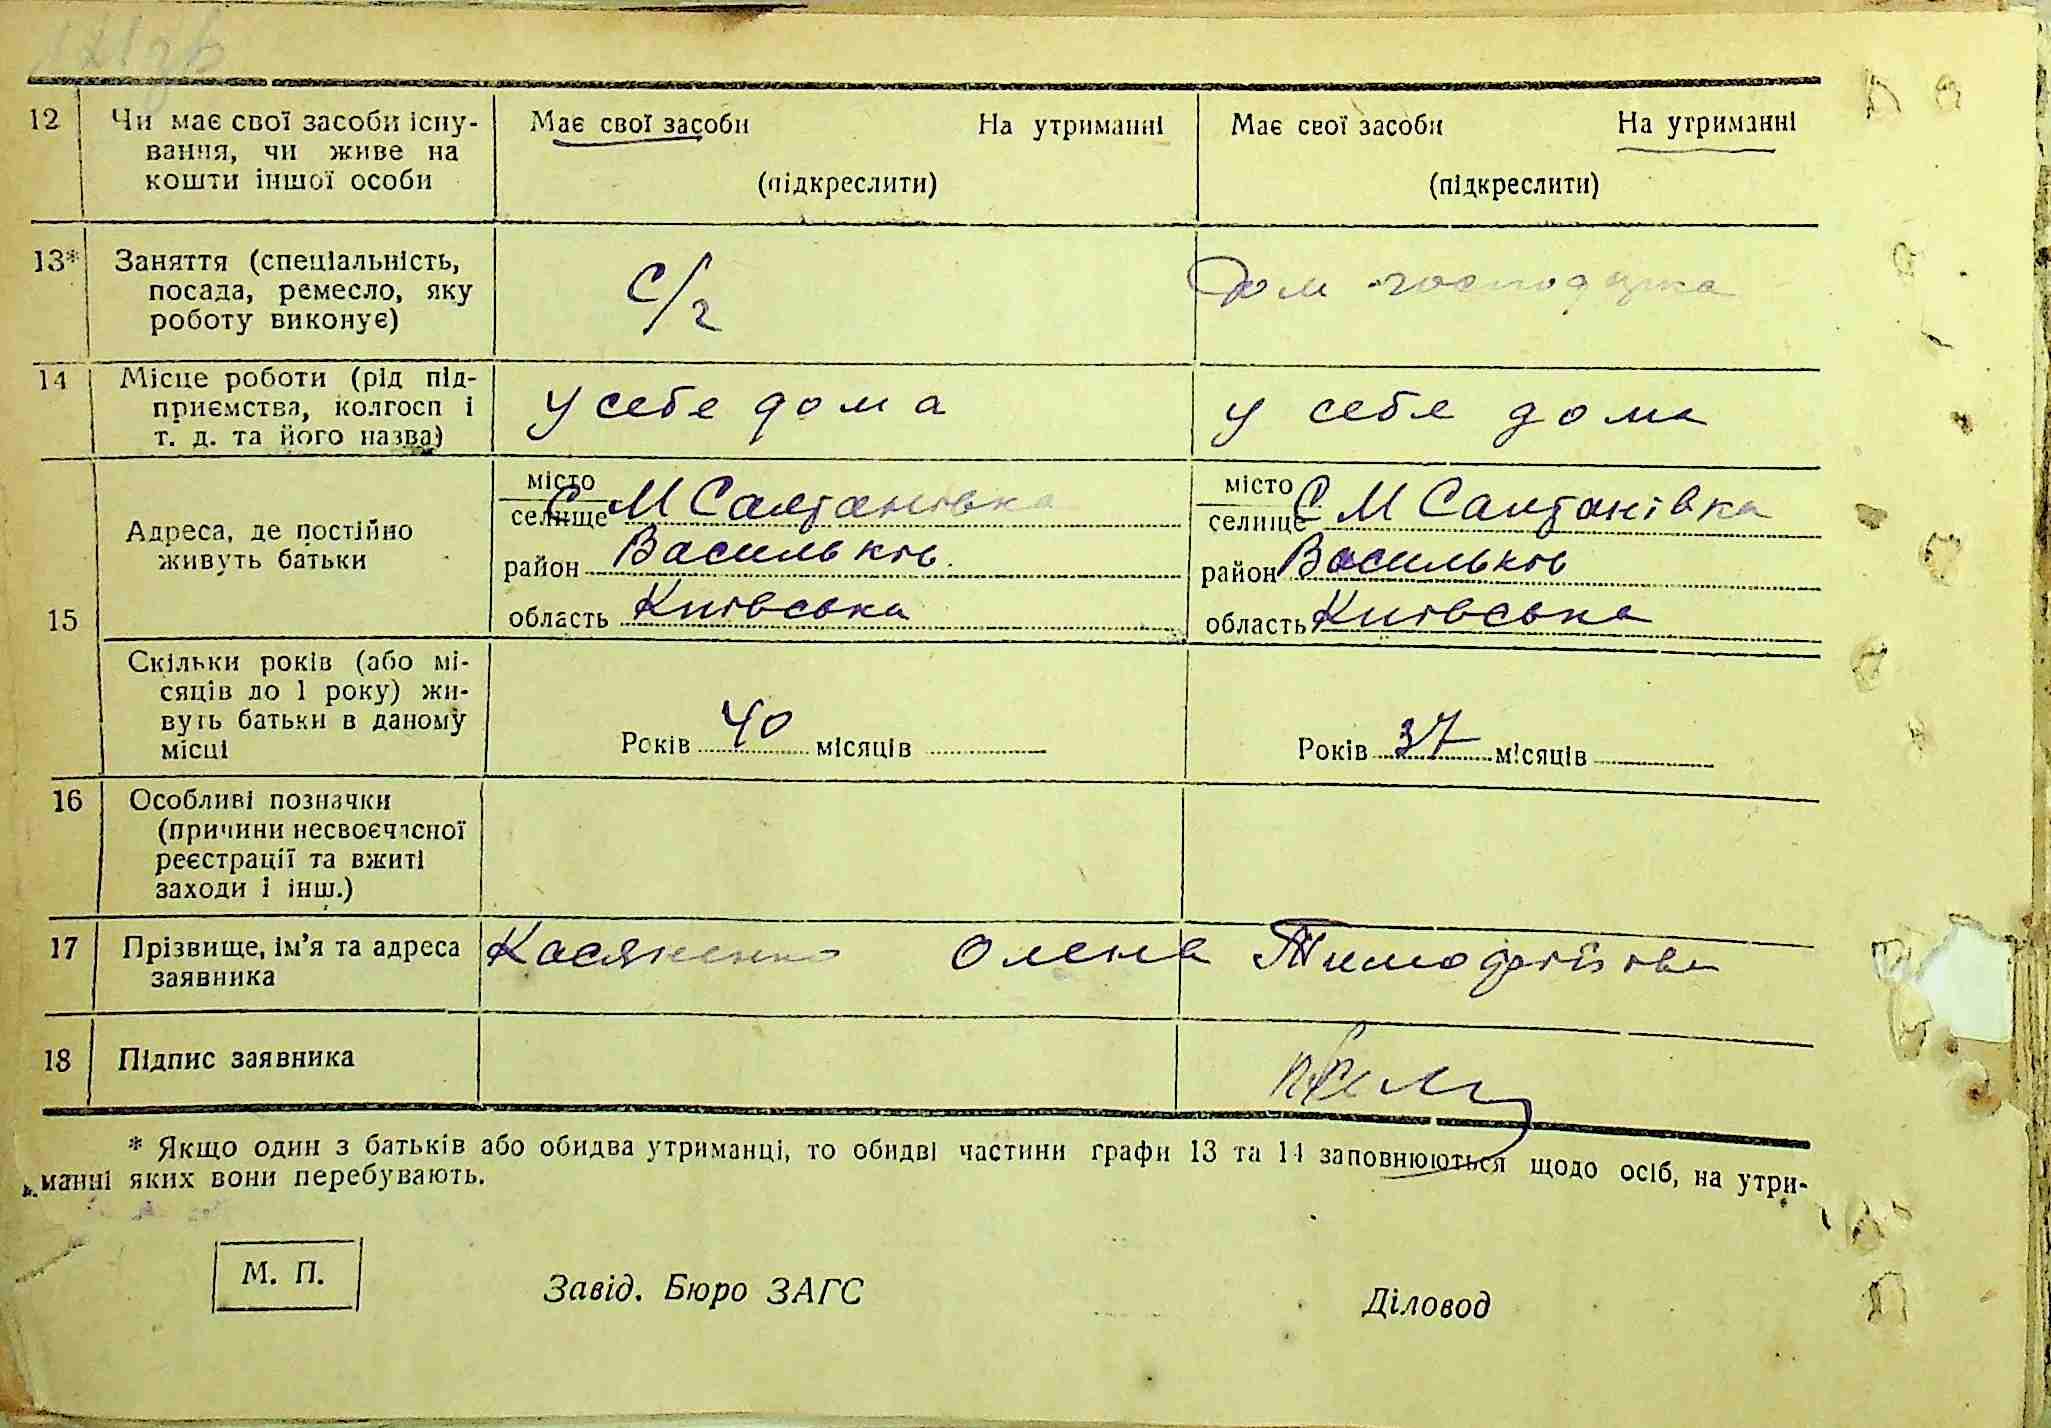 12 Чи має свої засоби існу-
вання, чи живе на
кошти іншої особи
Має свої засоби На утриманні
(підкреслити)
Має свої засоби На утриманні
(підкреслити)
13* Заняття (спеціальність,
посада, ремесло, яку
роботу виконує)
С/г
Дом господарка
14 Місце роботи (рід під-
приємства, колгосп і
т. д. та його назва)
у себе дома
у себе дома
15
Адреса, де постійно
живуть батьки
місто
селище С М Салтанівка
район Васильків
область Київська
місто
селище С М Салтанівка
район Васильків
область Київська
Скільки років (або мі-
сяців до 1 року) жи-
вуть батьки в даному
місці
Років 40 місяців
Років 37 місяців
16 Особливі позначки
(причини несвоєчасної
реєстрації та вжиті
заходи і інш.)
17 Прізвище, ім’я та адреса
заявника
Касяненко Олена Тимофіївна
18 Підпис заявника
* Якщо один з батьків або обидва утриманці, то обидві частини графи 13 та 14 заповнюються щодо осіб, на утри-
манні яких вони перебувають.
М. П.
Завід. Бюро ЗАГС
Діловод